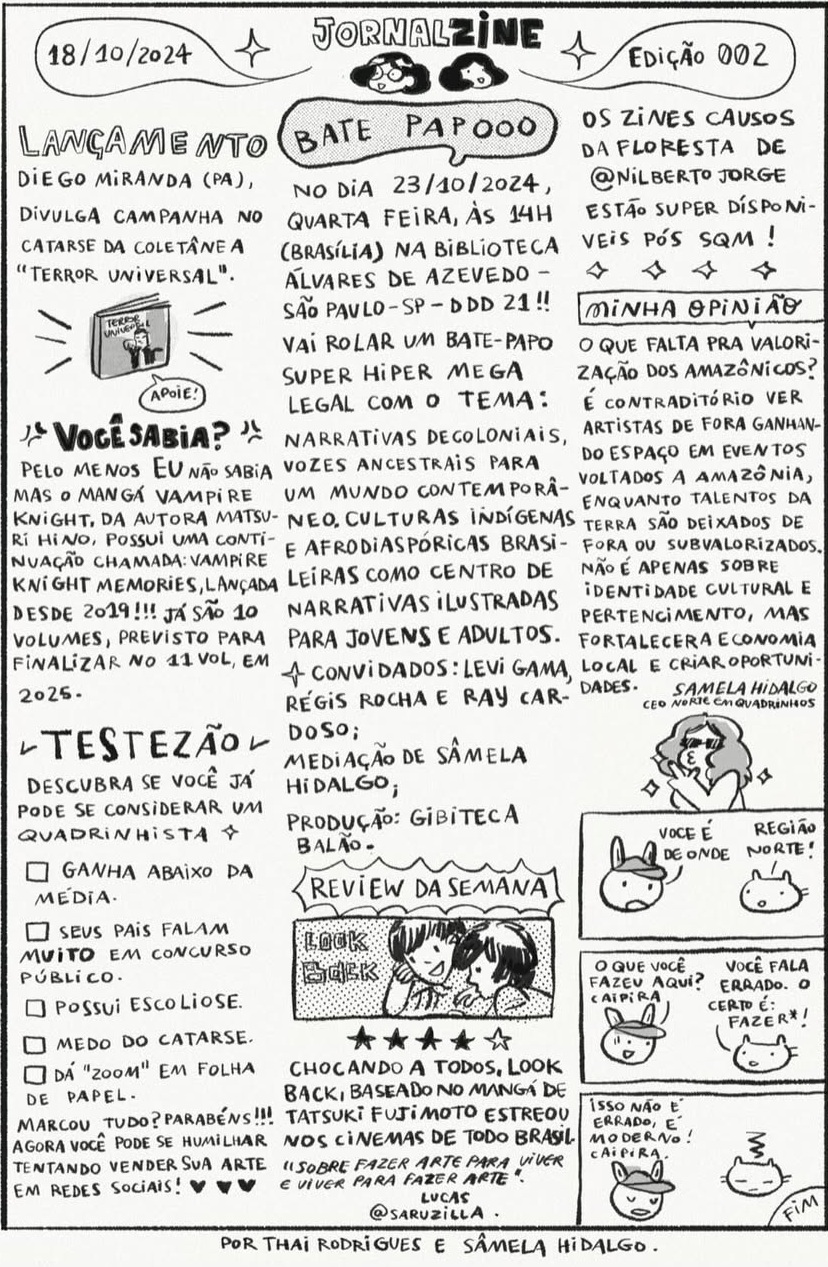 18/10/2024
JORNALZINE
EDIÇÃO 002
LANÇAMENTO
DIEGO MIRANDA (PA),
DIVULGA CAMPANHA NO
CATARSE DA COLETÂNEA
"TERROR UNIVERSAL".
TERROR
UNIVERSAL
APOIE!
VOCÊ SABIA?
PELO MENOS EU NÃO SABIA
MAS O MANGÁ VAMPIRE
KNIGHT, DA AUTORA MATSU-
RI HINO, POSSUI UMA CONTI-
NUAÇÃO CHAMADA: VAMPIRE
KNIGHT MEMORIES, LANÇADA
DESDE 2019!!! JÁ SÃO 10
VOLUMES, PREVISTO PARA
FINALIZAR NO 11 VOL, EM
2025.
TESTEZÃO
DESCUBRA SE VOCÊ JÁ
PODE SE CONSIDERAR UM
QUADRINHISTA
GANHA ABAIXO DA
MÉDIA.
SEUS PAIS FALAM
MUITO EM CONCURSO
PÚBLICO.
POSSUI ESCOLIOSE.
MEDO DO CATARSE.
DÁ "ZOOM" EM FOLHA
DE PAPEL.
MARCOU TUDO? PARABÉNS!!!
AGORA VOCÊ PODE SE HUMILHAR
TENTANDO VENDER SUA ARTE
EM REDES SOCIAIS! ♥ ♥ ♥
BATE PAPOOO
NO DIA 23/10/2024,
QUARTA FEIRA, ÀS 14H
(BRASÍLIA) NA BIBLIOTECA
ÁLVARES DE AZEVEDO -
SÃO PAULO-SP-DDD 21!!
VAI ROLAR UM BATE-PAPO
SUPER HIPER MEGA
LEGAL COM O TEMA:
NARRATIVAS DECOLONIAIS,
VOZES ANCESTRAIS PARA
UM MUNDO CONTEMPORÂ-
NEO. CULTURAS INDÍGENAS
E AFRODIASPÓRICAS BRASI-
LEIRAS COMO CENTRO DE
NARRATIVAS ILUSTRADAS
PARA JOVENS E ADULTOS.
CONVIDADOS: LEVI GAMA,
RÉGIS ROCHA E RAY CAR-
DOSO;
MEDIAÇÃO DE SÂMELA
HIDALGO;
PRODUÇÃO: GIBITECA
BALÃO.
REVIEW DA SEMANA
LOOK
BACK
★★★★☆
CHOCANDO A TODOS, LOOK
BACK, BASEADO NO MANGÁ DE
TATSUKI FUJIMOTO ESTREOU
NOS CINEMAS DE TODO BRASIL
"SOBRE FAZER ARTE PARA VIVER
E VIVER PARA FAZER ARTE".
LUCAS
@SARUZILLA.
OS ZINES CAUSOS
DA FLORESTA DE
@NILBERTO JORGE
ESTÃO SUPER DISPONI-
VEIS PÓS SQM!
MINHA OPINIÃO
O QUE FALTA PRA VALORI-
ZAÇÃO DOS AMAZÔNICOS?
É CONTRADITÓRIO VER
ARTISTAS DE FORA GANHAN-
DO ESPAÇO EM EVENTOS
VOLTADOS A AMAZÔNIA,
ENQUANTO TALENTOS DA
TERRA SÃO DEIXADOS DE
FORA OU SUBVALORIZADOS.
NÃO É APENAS SOBRE
IDENTIDADE CULTURAL E
PERTENCIMENTO, MAS
FORTALECER A ECONOMIA
LOCAL E CRIAR OPORTUNI-
DADES.
SAMELA HIDALGO
CEO NORTE EM QUADRINHOS
VOCE É
DE ONDE
REGIÃO
NORTE!
O QUE VOCÊ
FAZEU AQUI?
CAIPIRA
VOCÊ FALA
ERRADO. O
CERTO É:
FAZER*!
ISSO NÃO É
ERRADO, É
MODERNO!
CAIPIRA.
FIM
POR THAI RODRIGUES E SÂMELA HIDALGO.